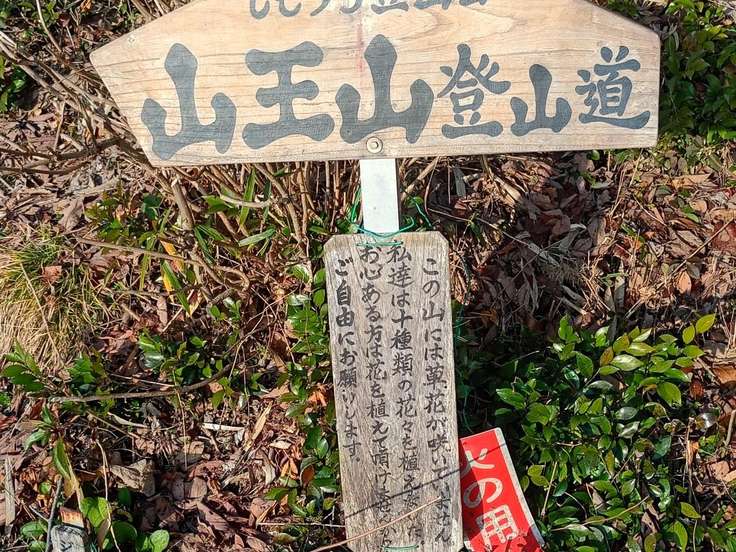 山王山登山道
この山には草花が咲いていません
私達は十種類の花々を植えました
お心ある方は花を植えて頂け
ご自由にお願いします
火の用